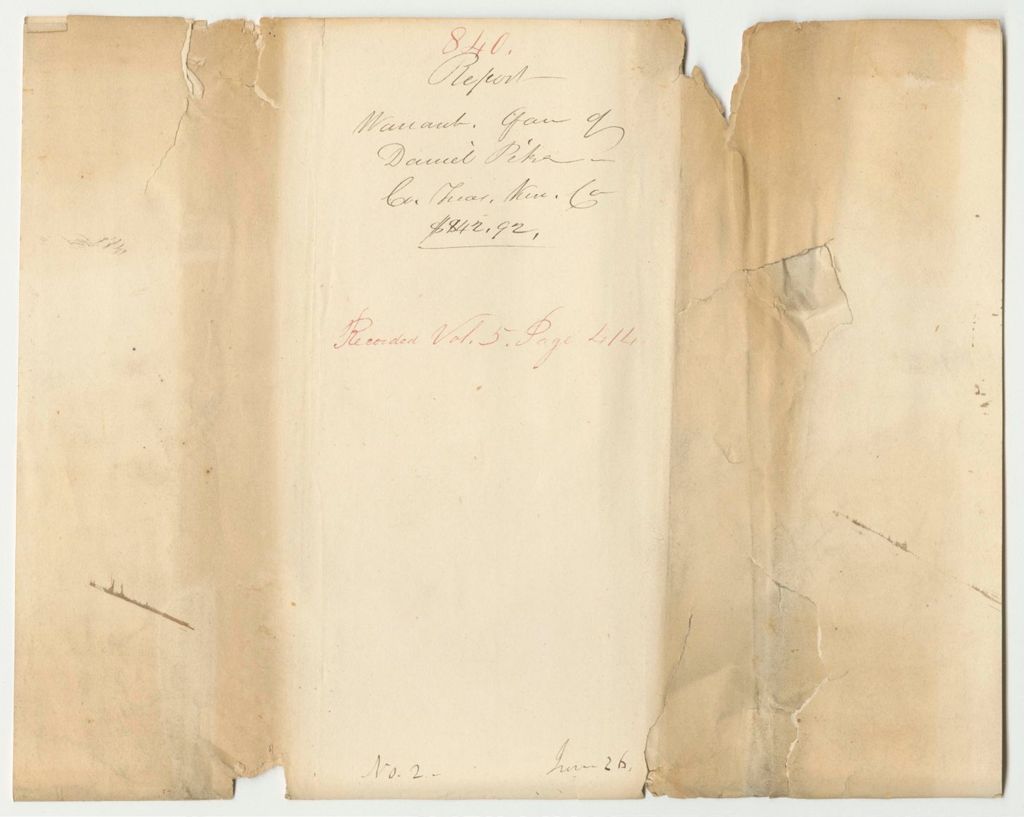 840.
Report
Warrant. favr of
Daniel Pike
Co. Treas. Ken. Co
$842.92.
Recorded Vol. 5. Page 414
No. 2.
June 26.